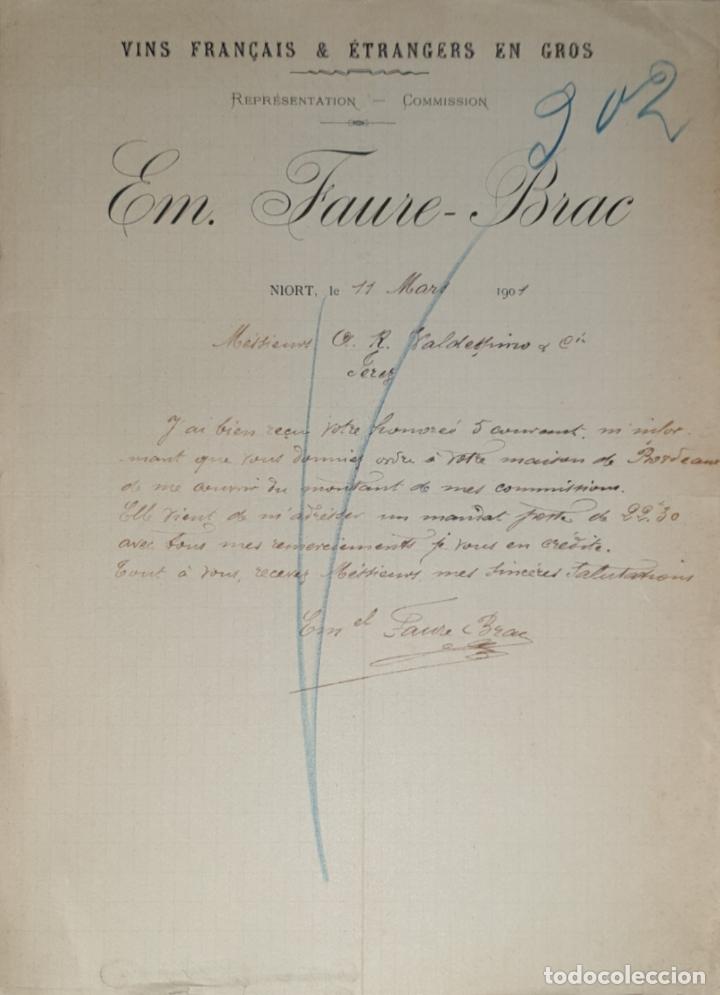 VINS FRANÇAIS & ÉTRANGERS EN GROS
REPRÉSENTATION — COMMISSION
902
Em. Faure-Brac
NIORT, le 11 Mars 1901
Messieurs A. R. Valdespino & Cie
Jerez
J'ai bien reçu votre honorés 5 courant, m'infor
mant que vous donniez ordre à votre maison de Bordeaux
de me couvrir du montant de mes commissions.
Elle vient de m'adresser un mandat poste de 22.30
avec tous mes remerciements je vous en crédite.
Tout à vous, recevez Messieurs, mes sincères salutations
Emel Faure Brac
todocoleccion
todocoleccion.net